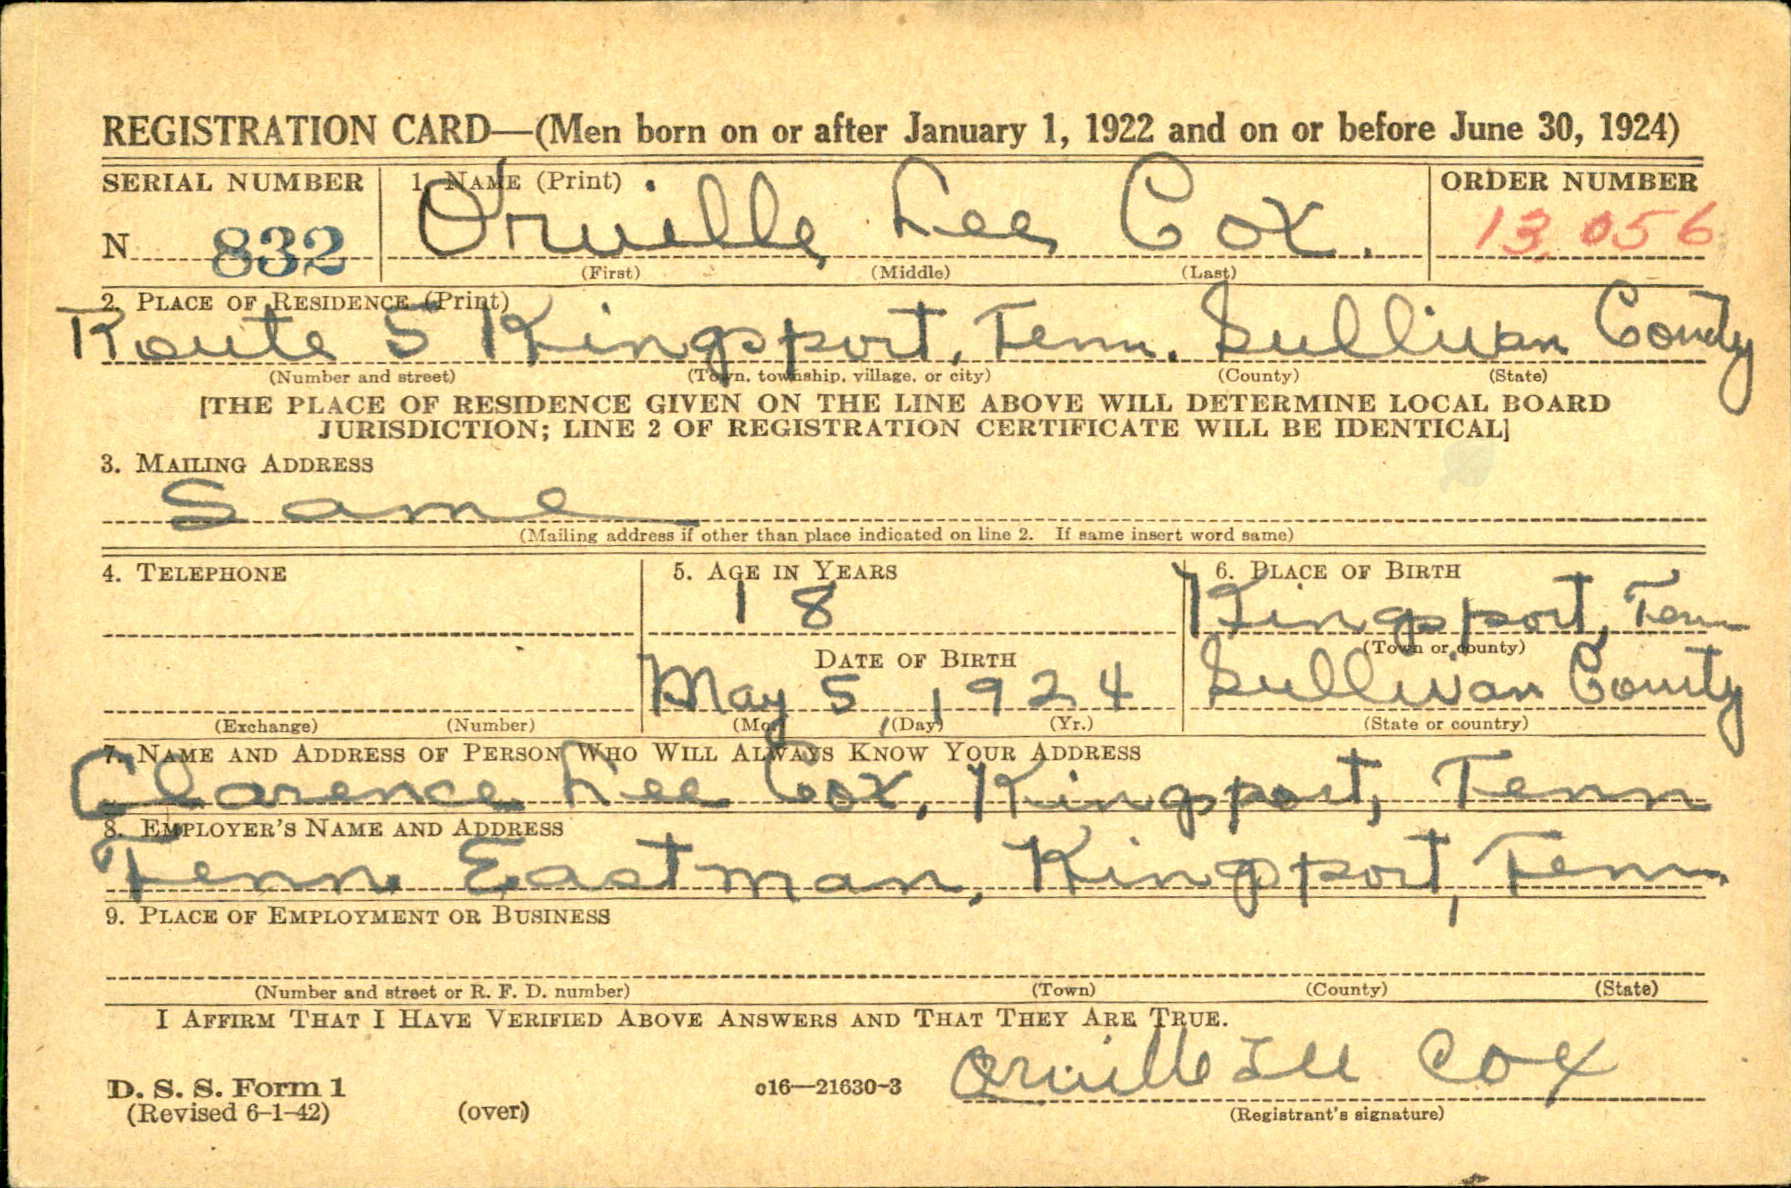 REGISTRATION CARD—(Men born on or after January 1, 1922 and on or before June 30, 1924)
SERIAL NUMBER 1. NAME (Print) ORDER NUMBER
N 832 Orville Lee Cox. 13,056
(First) (Middle) (Last)
2. PLACE OF RESIDENCE (Print)
Route 5 Kingsport, Tenn. Sullivan County
(Number and street) (Town, township, village, or city) (County) (State)
[THE PLACE OF RESIDENCE GIVEN ON THE LINE ABOVE WILL DETERMINE LOCAL BOARD
JURISDICTION; LINE 2 OF REGISTRATION CERTIFICATE WILL BE IDENTICAL]
3. MAILING ADDRESS
Same
(Mailing address if other than place indicated on line 2. If same insert word same)
4. TELEPHONE 5. AGE IN YEARS 6. PLACE OF BIRTH
18 Kingsport, Tenn
(Town or county)
DATE OF BIRTH
May 5, 1924 Sullivan County
(Exchange) (Number) (Mo.) (Day) (Yr.) (State or country)
7. NAME AND ADDRESS OF PERSON WHO WILL ALWAYS KNOW YOUR ADDRESS
Clarence Lee Cox, Kingsport, Tenn
8. EMPLOYER'S NAME AND ADDRESS
Tenn Eastman, Kingsport, Tenn
9. PLACE OF EMPLOYMENT OR BUSINESS
(Number and street or R. F. D. number) (Town) (County) (State)
I AFFIRM THAT I HAVE VERIFIED ABOVE ANSWERS AND THAT THEY ARE TRUE.
Orville Lee Cox
D. S. S. Form 1 c16—21630-3
(Revised 6-1-42) (over) (Registrant's signature)